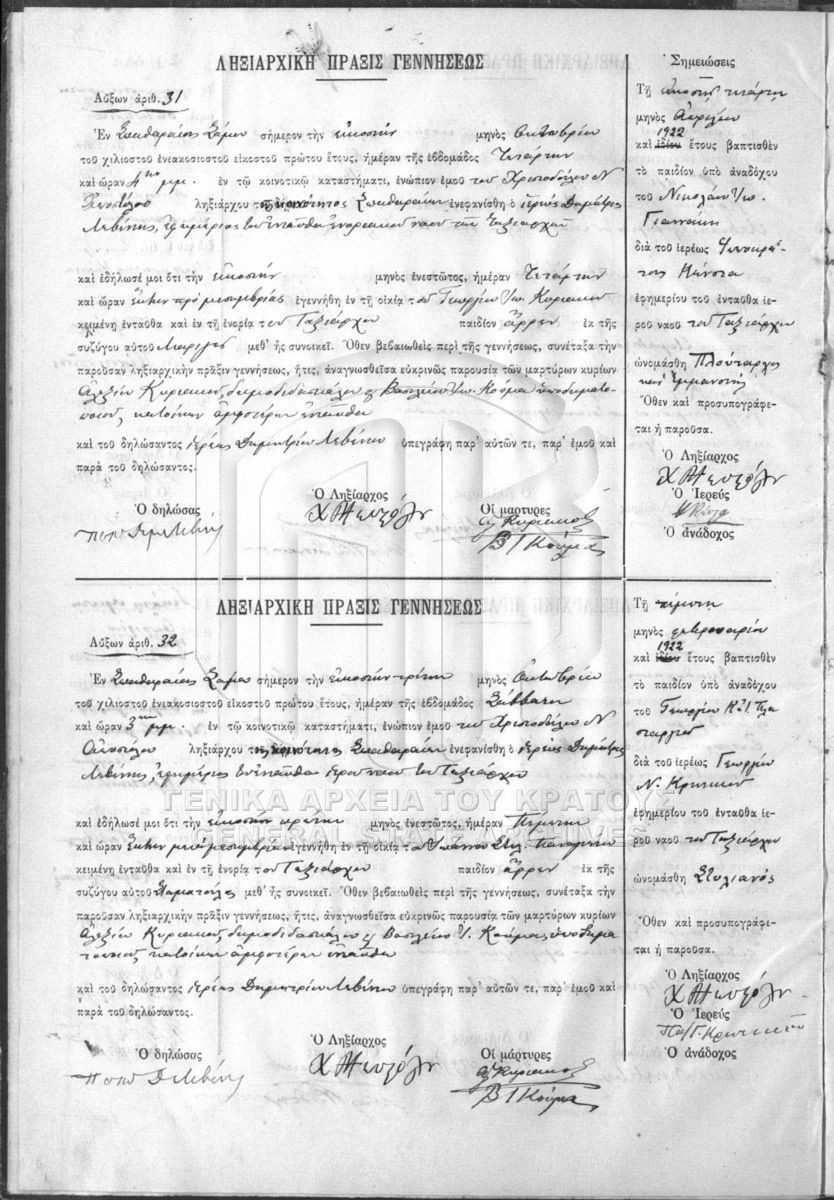 ΛΗΞΙΑΡΧΙΚΗ ΠΡΑΞΙΣ ΓΕΝΝΗΣΕΩΣ
Αὔξων ἀριθ. 31
Ἐν Σπαθαραίοις Σάμου σήμερον τὴν εἰκοστὴν μηνὸς Ὀκτωβρίου
τοῦ χιλιοστοῦ ἐνεακοσιοστοῦ εἰκοστοῦ πρώτου ἔτους, ἡμέραν τῆς ἑβδομάδος Τετάρτην
καὶ ὥραν 4ην μμ. ἐν τῷ κοινοτικῷ καταστήματι, ἐνώπιον ἐμοῦ τοῦ Χριστοδούλου Ν
ληξιάρχου τῆς κοινότητος Σπαθαραίων ἐνεφανίσθη ὁ ἱερεὺς Δημήτριος
Λεβίνης, ἐφημέριος τοῦ ἐνταῦθα ἐνοριακοῦ ναοῦ τῶν Ταξιαρχῶν
καὶ ἐδήλωσέ μοι ὅτι τὴν εἰκοστὴν μηνὸς ἐνεστῶτος, ἡμέραν Τετάρτην
καὶ ὥραν ἕκτην πρὸ μεσημβρίας ἐγεννήθη ἐν τῇ οἰκίᾳ τοῦ Γεωργίου Ἰω. Κυριακοῦ
κειμένῃ ἐνταῦθα καὶ ἐν τῇ ἐνορίᾳ τοῦ Ταξιάρχου παιδίον ἄρρεν ἐκ τῆς
συζύγου αὐτοῦ Μαρίγως μεθ' ἧς συνοικεῖ. Ὅθεν βεβαιωθεὶς περὶ τῆς γεννήσεως, συνέταξα τὴν
παροῦσαν ληξιαρχικὴν πρᾶξιν γεννήσεως, ἥτις, ἀναγνωσθεῖσα εὐκρινῶς παρουσίᾳ τῶν μαρτύρων κυρίων
Ἀλεξίου Κυριακοῦ, δημοδιδασκάλου & Βασιλείου Ἰω. Κούμα ὑποδηματο-
ποιοῦ, κατοίκων ἀμφοτέρων ἐνταῦθα
καὶ τοῦ δηλώσαντος ἱερέως Δημητρίου Λεβίνου ὑπεγράφη παρ' αὐτῶν τε, παρ' ἐμοῦ καὶ
παρὰ τοῦ δηλώσαντος.
Ὁ δηλώσας
Ὁ Ληξίαρχος
Οἱ μάρτυρες
Αλ Κυριακός
Β Ι Κούμας
Σημειώσεις
Τῇ εἰκοστῇ τετάρτῃ
μηνὸς Ἀπριλίου
1922
καὶ ἰδίου ἔτους βαπτισθὲν
τὸ παιδίον ὑπὸ ἀναδόχου
τοῦ Νικολάου Ἰω.
Γιαννάκη
διὰ τοῦ ἱερέως
ἐφημερίου τοῦ ἐνταῦθα ἱε-
ροῦ ναοῦ τοῦ Ταξιάρχου
ὠνομάσθη Πλούταρχος
καὶ Ἐμμανουήλ
Ὅθεν καὶ προσυπογράφε-
ται ἡ παροῦσα.
Ὁ Ληξίαρχος
Ὁ Ἱερεὺς
Ὁ ἀνάδοχος
ΛΗΞΙΑΡΧΙΚΗ ΠΡΑΞΙΣ ΓΕΝΝΗΣΕΩΣ
Αὔξων ἀριθ. 32
Ἐν Σπαθαραίοις Σάμου σήμερον τὴν εἰκοστὴν τρίτην μηνὸς Ὀκτωβρίου
τοῦ χιλιοστοῦ ἐνεακοσιοστοῦ εἰκοστοῦ πρώτου ἔτους, ἡμέραν τῆς ἑβδομάδος Σάββατον
καὶ ὥραν 3ην μμ. ἐν τῷ κοινοτικῷ καταστήματι, ἐνώπιον ἐμοῦ τοῦ Χριστοδούλου Ν
ληξιάρχου τῆς κοινότητος Σπαθαραίων ἐνεφανίσθη ὁ ἱερεὺς Δημήτριος
Λεβίνης, ἐφημέριος τοῦ ἐνταῦθα ἱεροῦ ναοῦ τοῦ Ταξιάρχου
καὶ ἐδήλωσέ μοι ὅτι τὴν εἰκοστὴν πρώτην μηνὸς ἐνεστῶτος, ἡμέραν Πέμπτην
καὶ ὥραν ἕκτην μετὰ μεσημβρίαν ἐγεννήθη ἐν τῇ οἰκίᾳ τοῦ Ἰωάννου Στυλ.
κειμένῃ ἐνταῦθα καὶ ἐν τῇ ἐνορίᾳ τοῦ Ταξιάρχου παιδίον ἄρρεν ἐκ τῆς
συζύγου αὐτοῦ Σταματούλας μεθ' ἧς συνοικεῖ. Ὅθεν βεβαιωθεὶς περὶ τῆς γεννήσεως, συνέταξα τὴν
παροῦσαν ληξιαρχικὴν πρᾶξιν γεννήσεως, ἥτις, ἀναγνωσθεῖσα εὐκρινῶς παρουσίᾳ τῶν μαρτύρων κυρίων
Ἀλεξίου Κυριακοῦ, δημοδιδασκάλου & Βασιλείου Ἰ. Κούμα, ὑποδημα
τοποιοῦ κατοίκων ἀμφοτέρων ἐνταῦθα
καὶ τοῦ δηλώσαντος ἱερέως Δημητρίου Λεβίνου ὑπεγράφη παρ' αὐτῶν τε, παρ' ἐμοῦ καὶ
παρὰ τοῦ δηλώσαντος.
Ὁ δηλώσας
Ὁ Ληξίαρχος
Οἱ μάρτυρες
Αλ Κυριακός
Β Ι Κούμας
Τῇ πέμπτῃ
μηνὸς Φεβρουαρίου
1922
καὶ ἰδίου ἔτους βαπτισθὲν
τὸ παιδίον ὑπὸ ἀναδόχου
τοῦ Γεωργίου
διὰ τοῦ ἱερέως Γεωργίου
Ν. Κρητικοῦ
ἐφημερίου τοῦ ἐνταῦθα ἱε-
ροῦ ναοῦ τοῦ Ταξιάρχου
ὠνομάσθη Στυλιανός
Ὅθεν καὶ προσυπογράφε-
ται ἡ παροῦσα.
Ὁ Ληξίαρχος
Ὁ Ἱερεὺς
Ὁ ἀνάδοχος
ΓΕΝΙΚΑ ΑΡΧΕΙΑ ΤΟΥ ΚΡΑΤΟΥΣ
GENERAL STATE ARCHIVES